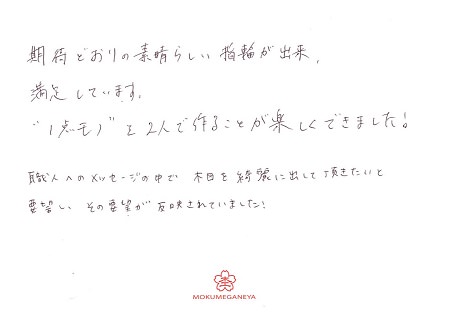 期待どおりの素晴らしい指輪が出来,
満足しています。
"1点モノ"を2人で作ることが楽しくできました!
職人へのメッセージの中で 木目を綺麗に出して頂きたいと
要望し その要望が反映されていました!
MOKUMEGANEYA